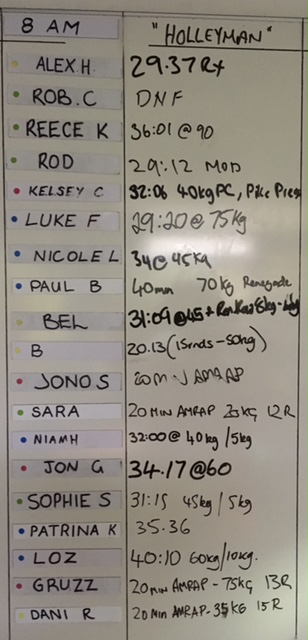 8 AM "HOLLEYMAN"
ALEX H 29.37 Rx
ROB.C DNF
REECE K 36:01 @ 90
ROD 29:12 MOD
KELSEY C 32:06 40kg PC, Pike Press
LUKE F 29:20 @ 75kg
NICOLE L 34 @ 45kg
PAUL B 40min 70kg Renegade
BEL 31:09 @45 +
B 20.13 (15rnds - 50kg)
JONO S 20M AMRAP
SARA 20 MIN AMRAP KG 12R
NIAMH 32:00 @ 40kg /5kg
JON G 34.17 @60
SOPHIE S 31:15 45kg / 5kg
PATRINA K 35.36
LOZ 40:10 60kg/10kg.
GRUZZ 20min AMRAP - 75kg 13R
DANI R 20 MIN AMRAP - 35KG 15R